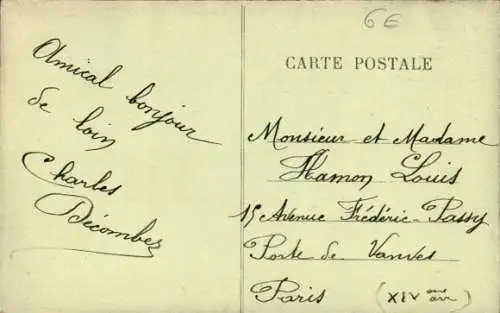 6€
CARTE POSTALE
Amical bonjour
de loin
Charles
Décombez
Monsieur et Madame
Hamon Louis
15 Avenue Frédéric-Passy
Porte de Vanves
Paris (XIVme arr)